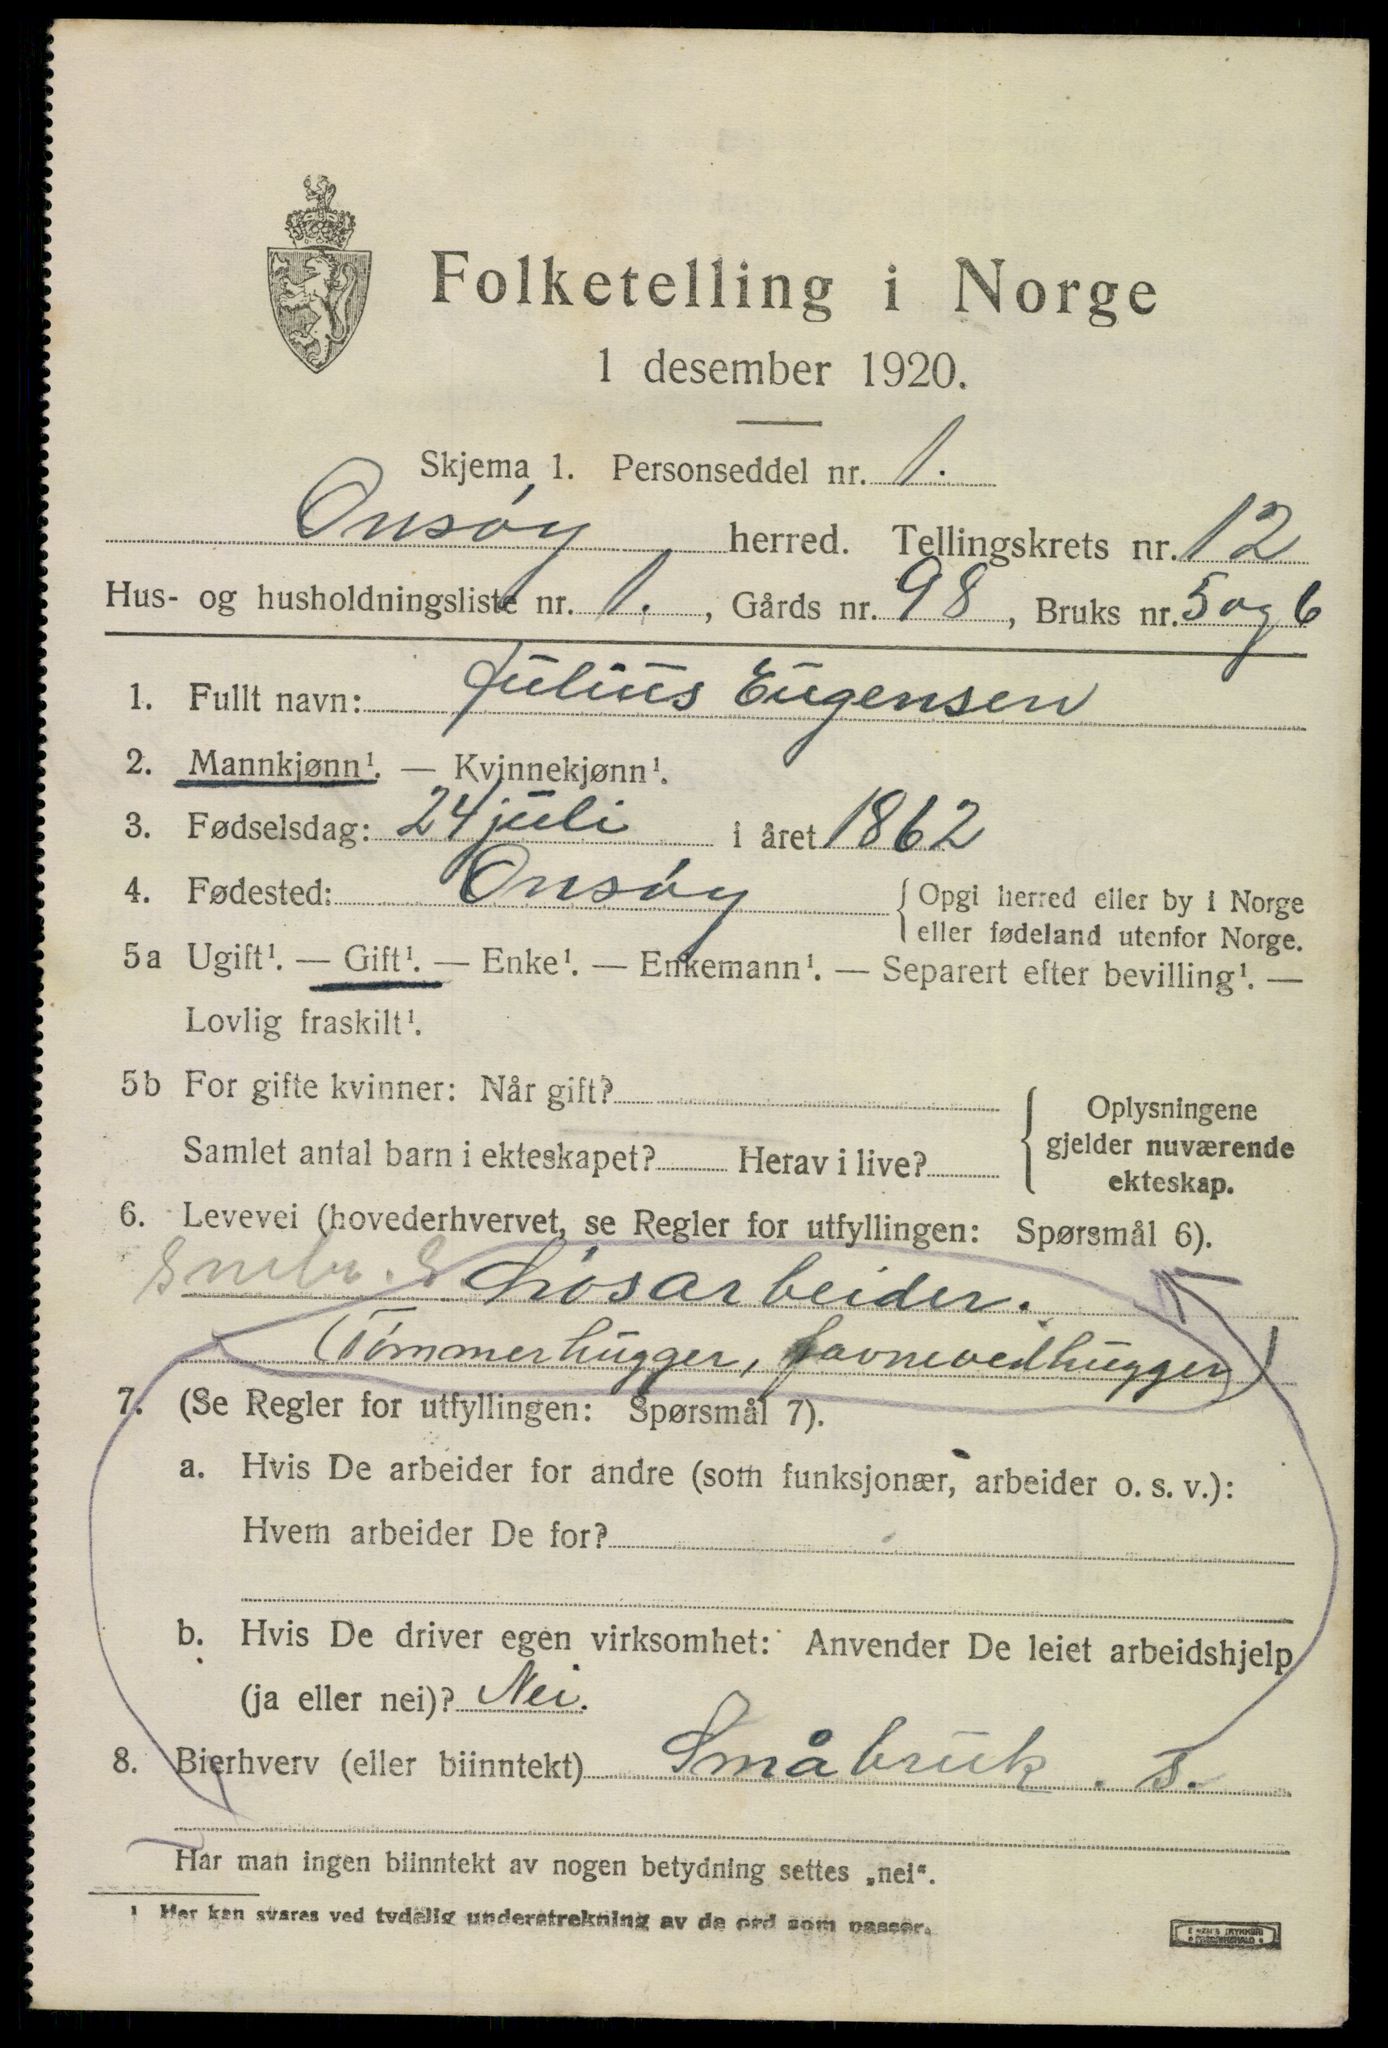 Folketelling i Norge
1 desember 1920.
Skjema 1. Personseddel nr. 1.
Onsøy herred. Tellingskrets nr. 12
Hus- og husholdningsliste nr. 1., Gårds nr. 98, Bruks nr. 5 og 6
1. Fullt navn: Julius Eugensen
2. Mannkjønn¹. — Kvinnekjønn¹.
3. Fødselsdag: 24 juli i året 1862
4. Fødested: Onsøy { Opgi herred eller by i Norge
eller fødeland utenfor Norge.
5a Ugift¹. — Gift¹. — Enke¹. — Enkemann¹. — Separert efter bevilling¹. —
Lovlig fraskilt¹.
5b For gifte kvinner: Når gift?
Samlet antal barn i ekteskapet? Herav i live?
{ Oplysningene
gjelder nuværende
ekteskap.
6. Levevei (hovederhvervet, se Regler for utfyllingen: Spørsmål 6).
Løsarbeider.
(Tømmerhugger, favnevedhugger)
7. (Se Regler for utfyllingen: Spørsmål 7).
a. Hvis De arbeider for andre (som funksjonær, arbeider o. s. v.):
Hvem arbeider De for?
b. Hvis De driver egen virksomhet: Anvender De leiet arbeidshjelp
(ja eller nei)? Nei.
8. Bierhverv (eller biinntekt) Småbruk. s.
Har man ingen biinntekt av nogen betydning settes „nei“.
1 Her kan svares ved tydelig understrekning av de ord som passer.